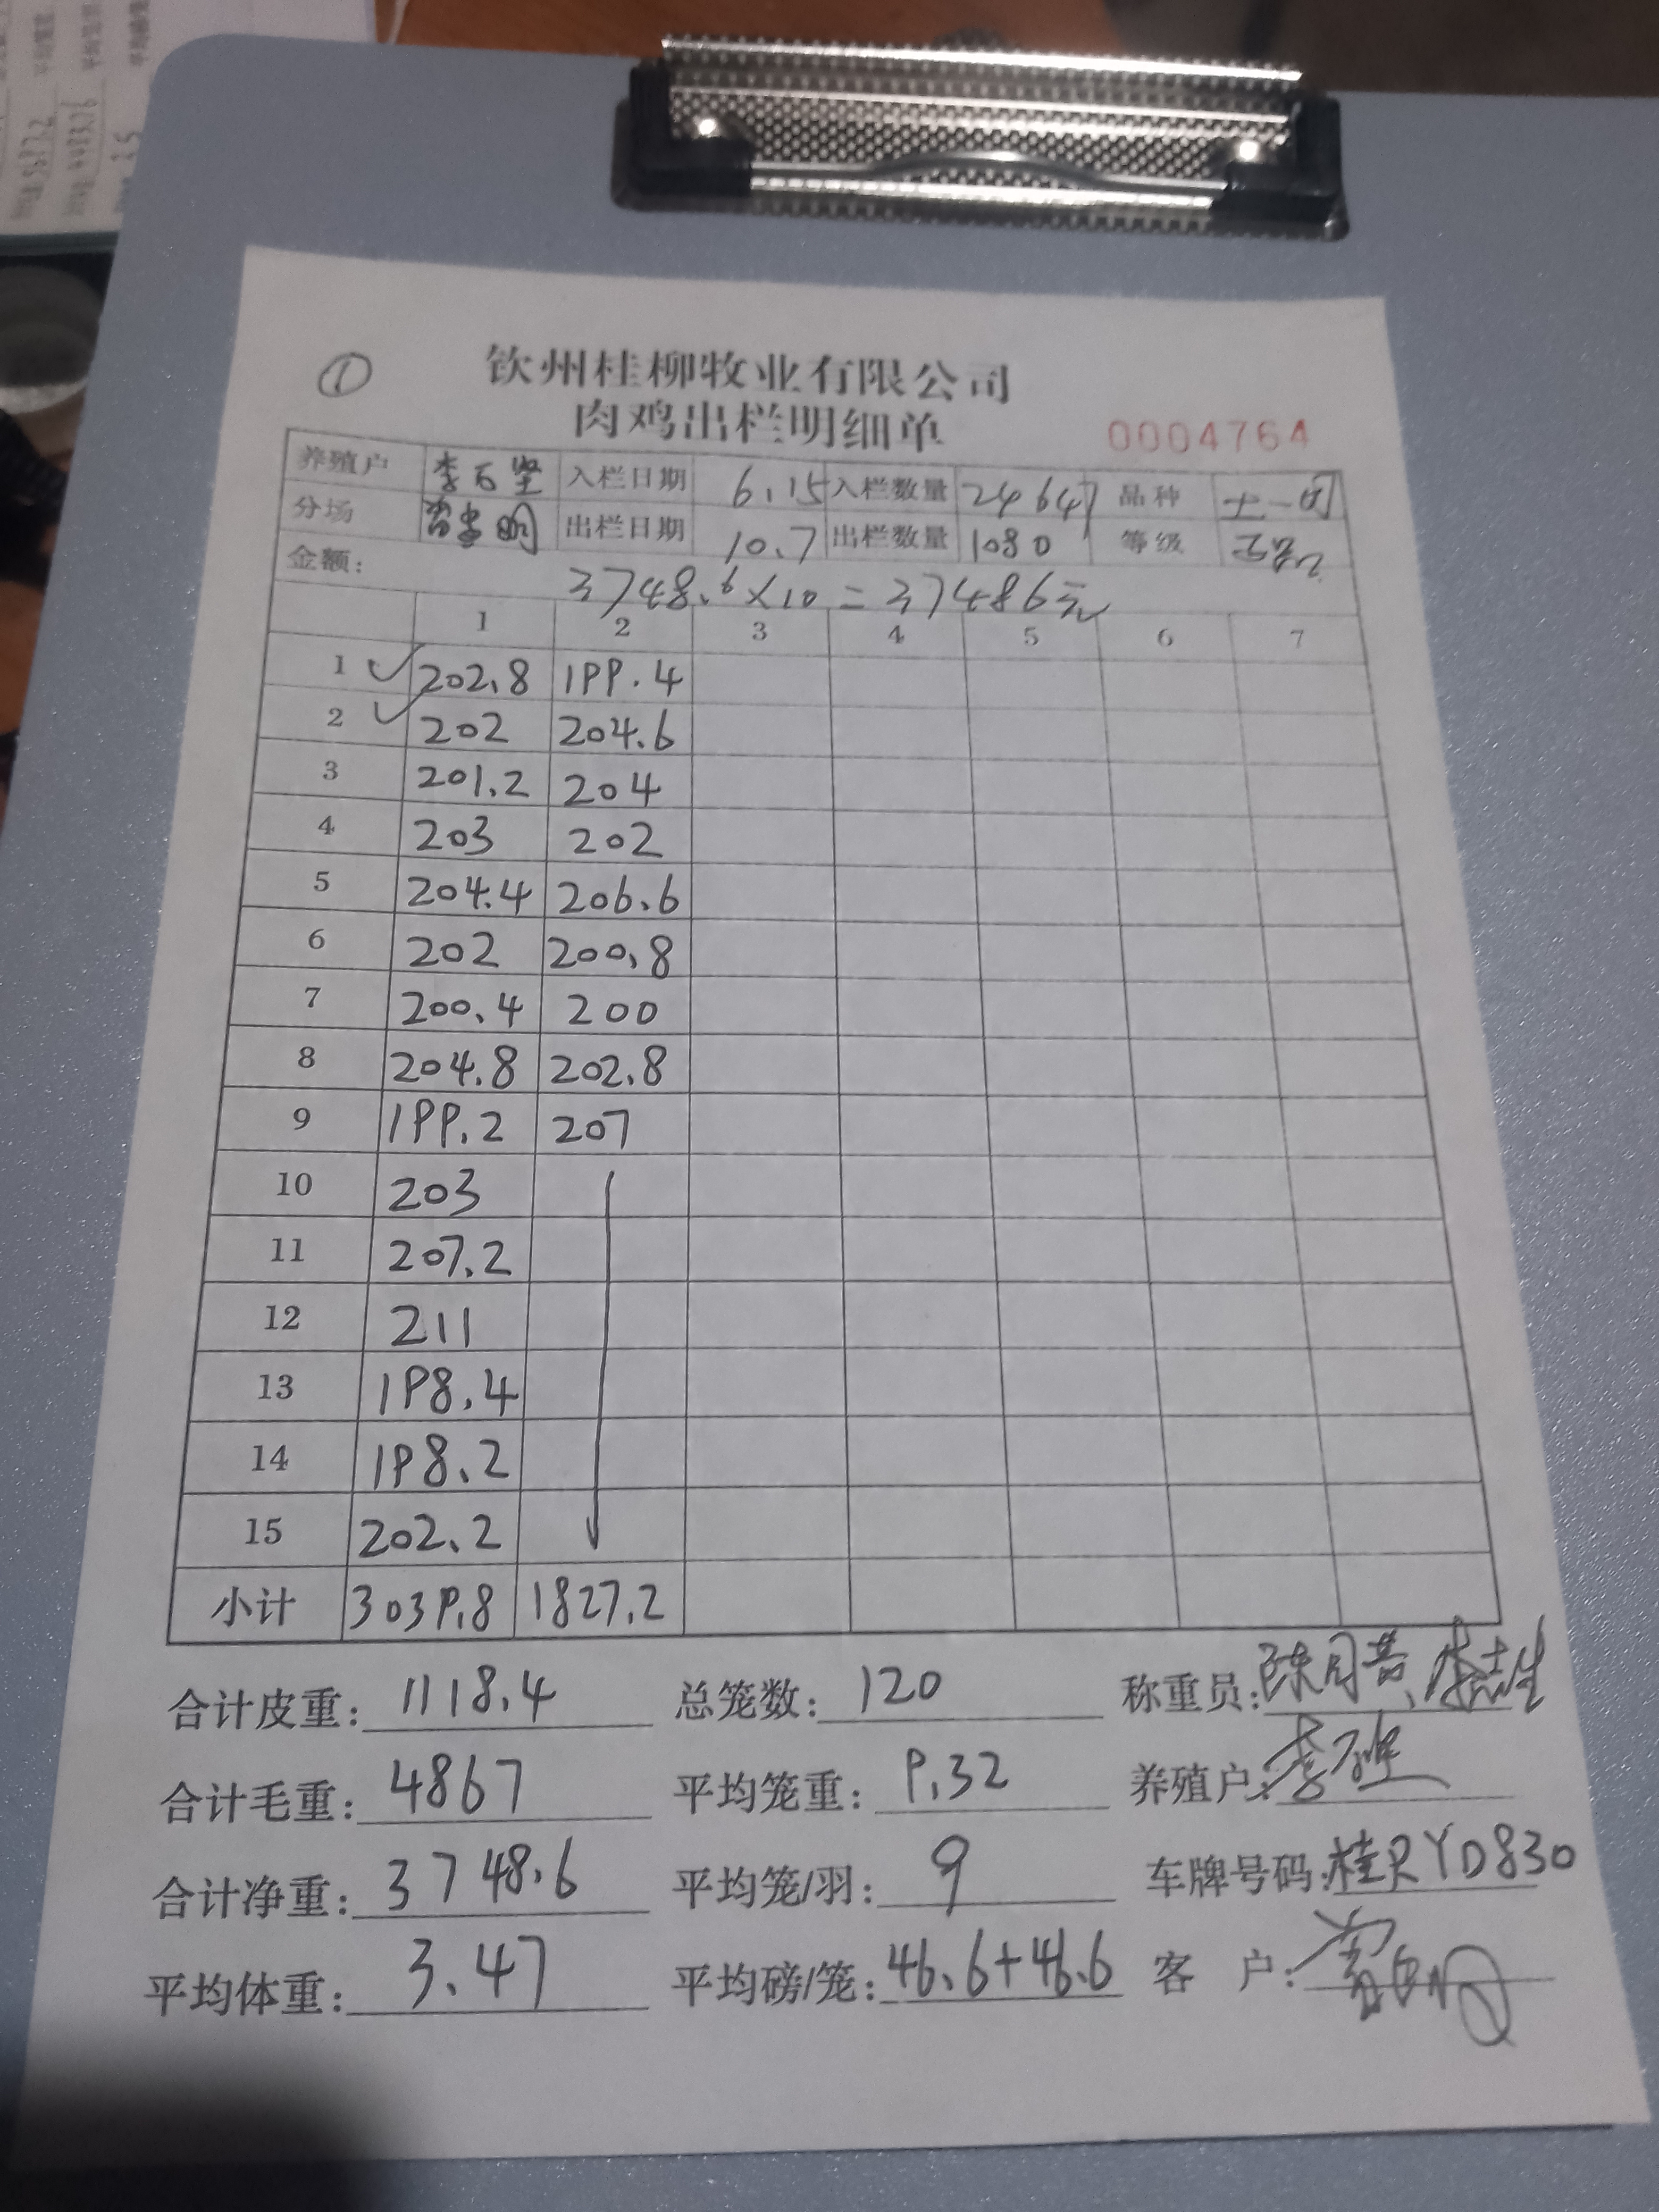 ①
钦州桂柳牧业有限公司
肉鸡出栏明细单 0004764
养殖户 李石坚 入栏日期 6.15 入栏数量 24647 品种 土一
分场 出栏日期 10.7 出栏数量 1080 等级
金额: 3748.6×10=37486元
1 2 3 4 5 6 7
1 202.8 199.4
2 202 204.6
3 201.2 204
4 203 202
5 204.4 206.6
6 202 200.8
7 200.4 200
8 204.8 202.8
9 199.2 207
10 203
11 207.2
12 211
13 198.4
14 198.2
15 202.2
小计 3039.8 1827.2
合计皮重: 1118.4 总笼数: 120 称重员:
合计毛重: 4867 平均笼重: 9.32 养殖户:
合计净重: 3748.6 平均笼/羽: 9 车牌号码: 桂RYD830
平均体重: 3.47 平均磅/笼: 46.6+46.6 客 户: